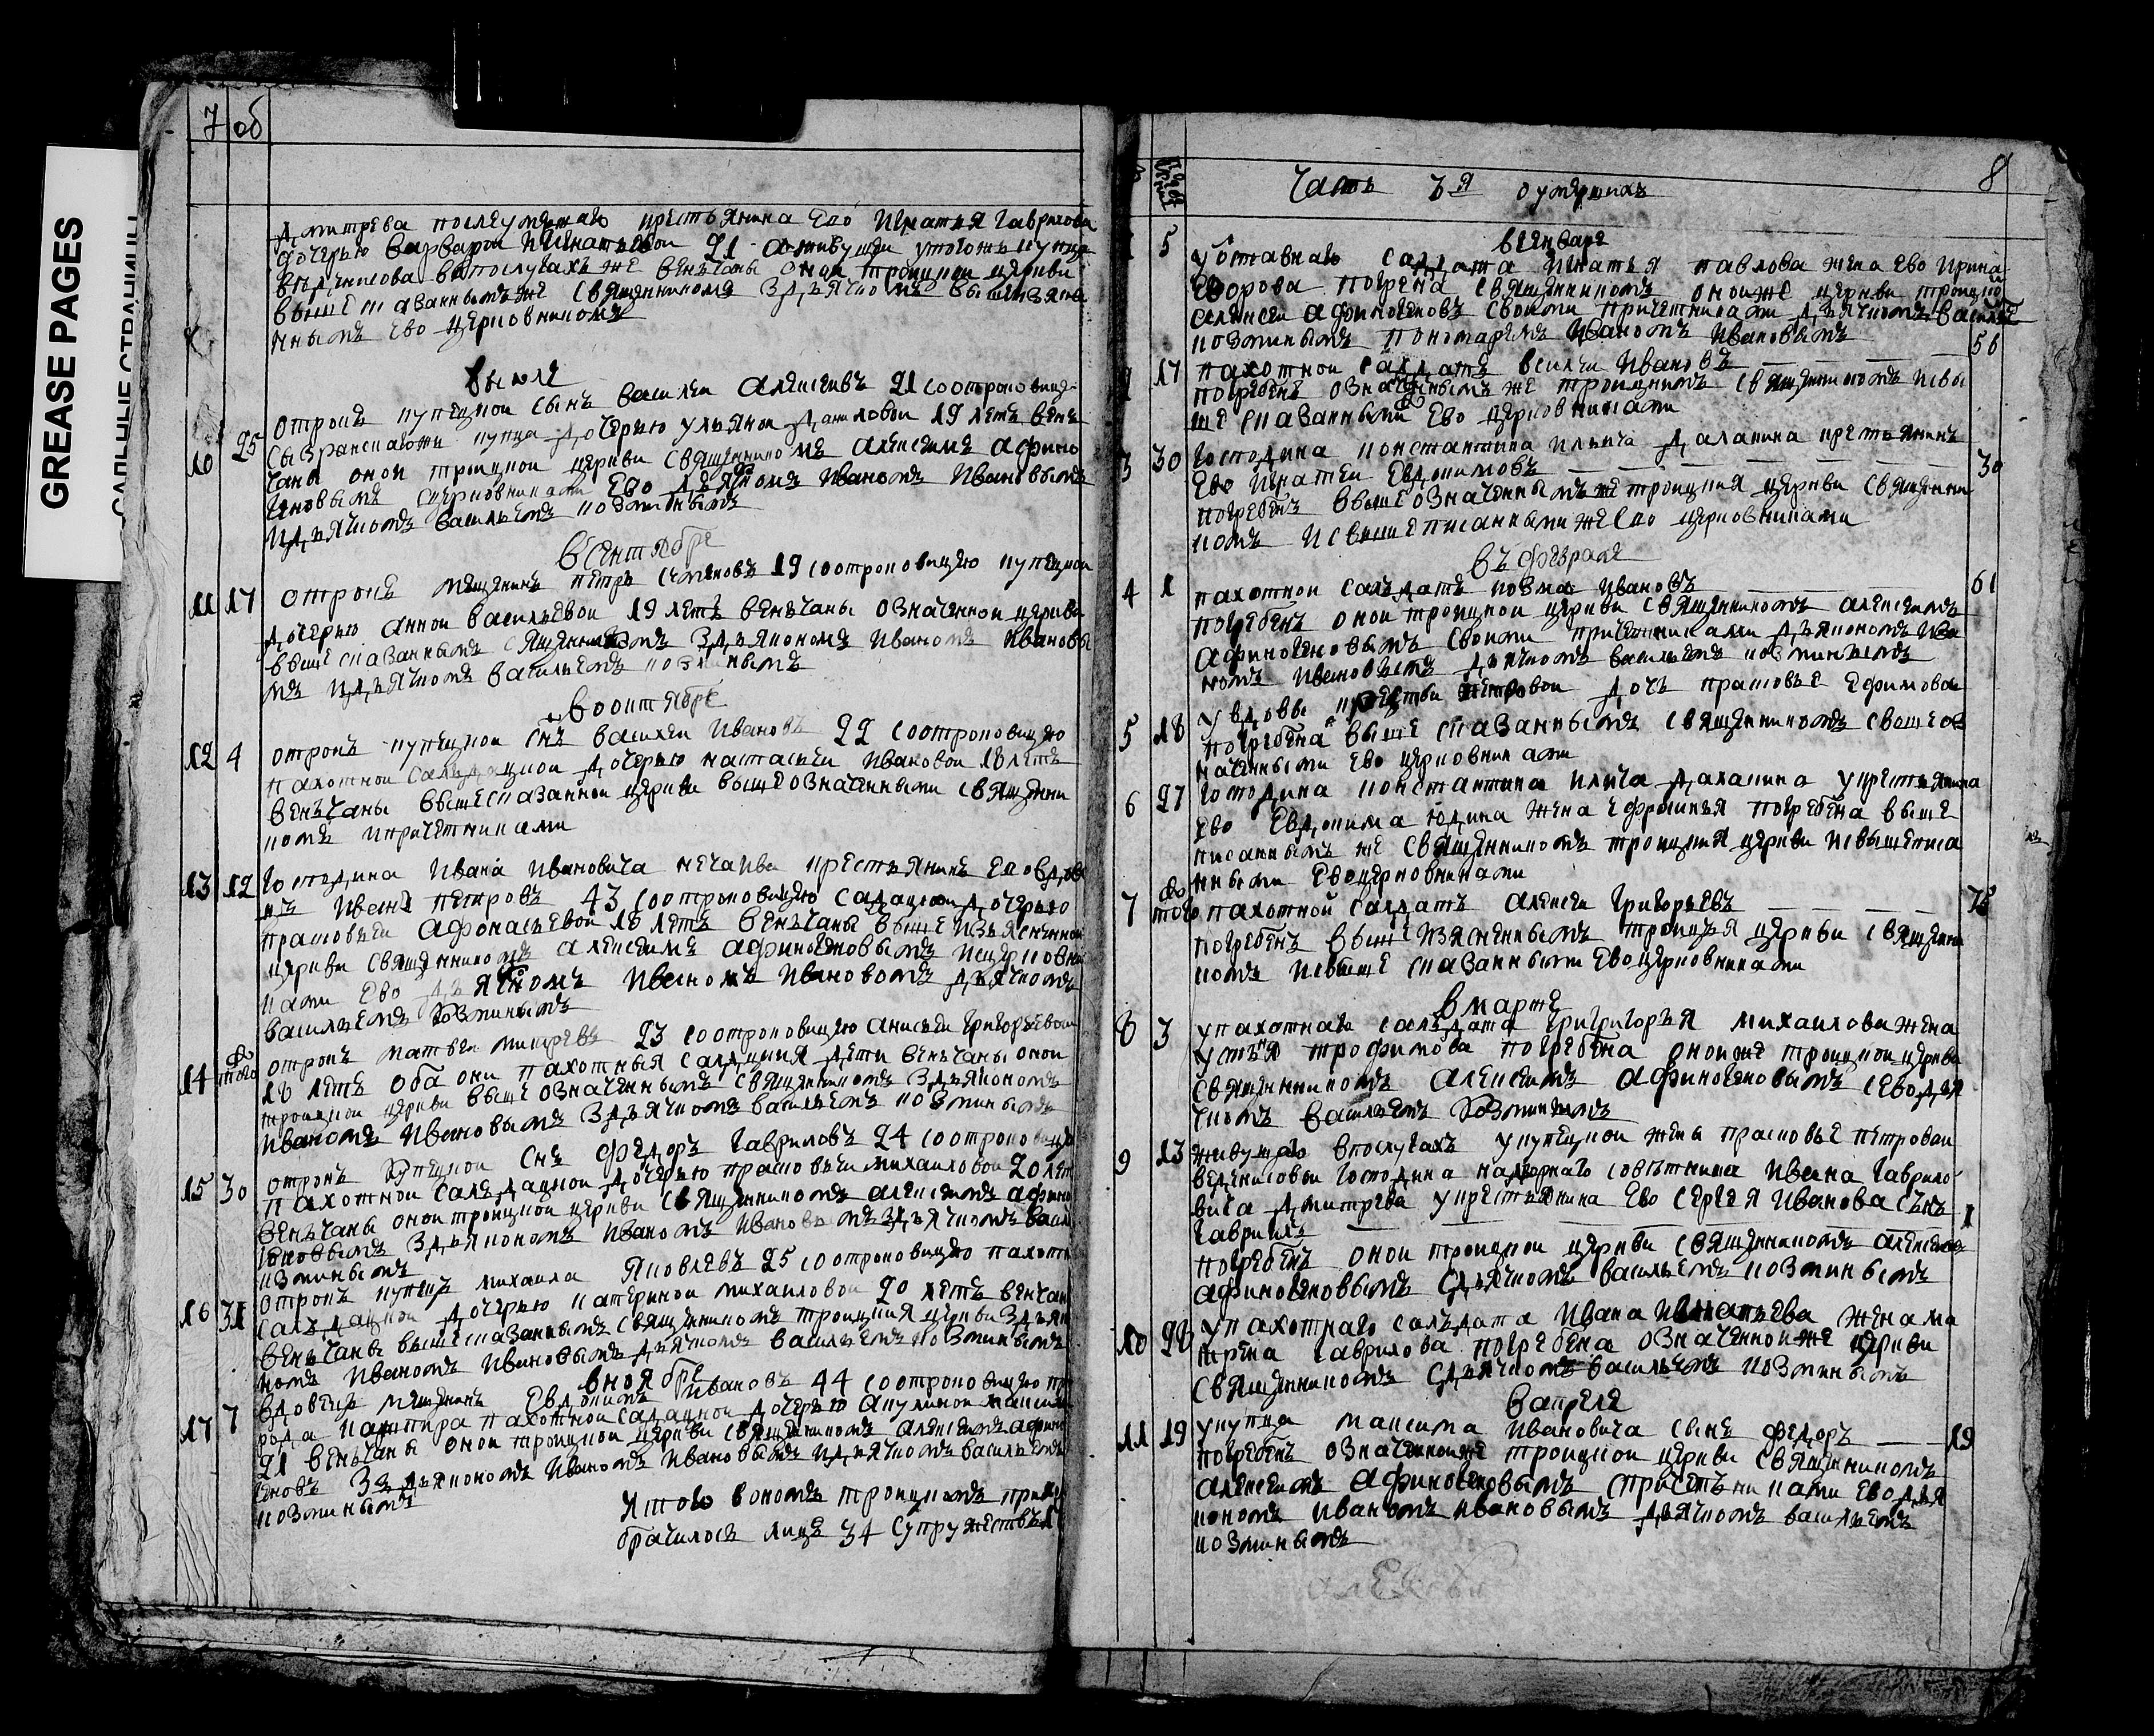 GREASE PAGES
7 об
Дмитрева послеумершаго крестьянина Его Игнатья Гаврилова
дочерью варварои Игнатьевои 21 а живущеи утогожъ купца
вопослугахъ же венъчаны онои троицкои церкви
вышесказаннымъ же священникомъ Здьячкомъ вышеизъяв
ннымъ Ево церковникомъ
выюле
10 25 отрокъ купецкои сынъ василеи Алексеивъ 21 соотроковицею
купца дочерью ульянои Даниловои 19 летъ венъ
чаны онои троицкои церкви священникомъ Алексеимъ Афино
геновымъ сцерковниками Ево дьякономъ Иваномъ Ивановымъ
идьячкомъ васильемъ козминымъ
всентябре
11 17 отрокъ мещанинъ петръ семеновъ 19 соотроковицею купецкои
дочерью аннои васильевои 19 летъ венъчаны означеннои церкви
вышесказаннымъ священникомъ Здьякономъ Иваномъ Ивановы
мъ идьячкомъ васильемъ козминымъ
вооктябре
12 4 отрокъ купецкои снъ василеи Ивановъ 22 соотроковицею
пахотнои салдацкои дочерью настасьеи Ивановои 18 летъ
венъчаны вышесказаннои церкви вышеозначенными священни
комъ ипричетниками
13 12 Господина Ивана Ивановича нечаива крестьянинъ Ево вдов
иванъ петровъ 43 соотроковицею салдацкои дочерью
прасковьеи афонасьевои 18 летъ венъчаны выше изъясненнои
церкви священникомъ алексеимъ афиногеновымъ ицерковни
ками Ево дьякономъ Иваномъ Ивановомъ дьячкомъ
васильемъ козминымъ
14 того отрокъ матвеи 23 соотроковицею анисьеи григорьевои
18 летъ оба они пахотныя салдацкия дети венъчаны онои
троицкои церкви выше означеннымъ священникомъ Здьякономъ
Иваномъ Ивановымъ Здьячкомъ васильемъ козминымъ
15 30 отрокъ купецкои снъ федоръ гавриловъ 24 соотроковицею
пахотнои салдацкои дочерью прасковьеи михаиловои 20 лет
венъчаны онои троицкои церкви священникомъ алексеимъ афино
геновымъ Здьякономъ Иваномъ Ивановымъ Здьячкомъ васил
козминымъ
16 31 отрокъ купецъ михаила Яковлевъ 25 соотроковицею пахотн
салдацкои дочерью катеринои михаиловои 20 летъ венчан
венъчаны вышесказаннымъ священникомъ троицкия церкви Здьяк
номъ Иваномъ Ивановымъ дьячкомъ васильемъ козминымъ
вноябре
17 7 вдовецъ мещанинъ Евдокимъ Ивановъ 44 соотроковицею
рода пахотнои салдацкои дочерью акулинои максим
21 венъчаны онои троицкои церкви священникомъ алексеимъ афино
геновъ Здьякономъ Иваномъ Ивановымъ идьячкомъ васильемъ
козминымъ
Итого вономъ троицкомъ прих
брачилось лицъ 34 супружествъ 17
8
Часть 3я оумершихъ
вгенваре
1 5 уотставнаго салдата Игнатья павлова жена Ево Ирина
погребена священникомъ онои же церкви троицкои
алексеи афиногеновъ своими причетниками дьячкомъ василье
козминымъ пономаремъ Иваномъ Ивановымъ
2 17 пахотнои салдатъ василеи Ивановъ 56
погребенъ означеннымъ же троицкимъ священникомъ Исвы
ше сказанными Ево церковниками
3 30 Господина константина Ильича Далакина крестьянинъ
Ево Игнатеи Евдокимовъ 30
погребенъ вышеозначеннымъ же троицкия церкви священни
комъ Исвышеписанными же Ево церковниками
въ феврале
4 1 пахотнои салъдатъ козма Ивановъ 61
погребенъ онои троицкои церкви священникомъ алексеимъ
Афиногеновымъ своими причетниками дьякономъ Ива
номъ Ивановымъ дьячкомъ васильемъ козминымъ
5 18 увдовы петровои дочь прасковье Ефимова
погребена выше сказаннымъ священникомъ
наченными Ево церковниками
6 27 Господина константина Илича Далакина укрестьянина
Ево Евдокима юдина жена Ефросинья погребена выше
писаннымъ же священникомъ троицкия церкви Исвышеписа
нными Евоцерковниками
7 того пахотнои салдатъ алексеи григорьевъ 75
погребенъ вышеизясненнымъ троицкия церкви священни
комъ Исвыше сказанными Евоцерковниками
вмарте
8 3 упахотнаго салъдата григригорья михаилова жена
устинья трофимова погребена онои же троицкои церкви
священникомъ алексеимъ афиногеновымъ сЕво дья
чкомъ васильемъ козминымъ
9 13 живущаго впослугахъ укупецкои жены прасковье петровои
Господина надворнаго советника Ивана гаврило
вича Дмитрева укрестьянина Ево Сергея Иванова сынъ
гаврилъ 1
погребенъ онои троицкои церкви священникомъ алексеимъ
афиногеновымъ сдьячкомъ васильемъ козминымъ
10 28 упахотнаго салъдата Ивана Игнатьева жена ма
трена гаврилова погребена означеннои же церкви
священникомъ сдьячкомъ васильемъ козминымъ
вапреле
11 19 укупца максима Ивановича сынъ федоръ 19
погребенъ означеннои же троицкои церкви священникомъ
алексеимъ афиногеновымъ спричетъниками Ево дья
кономъ Иваномъ Ивановымъ дьячкомъ васильемъ
козминымъ